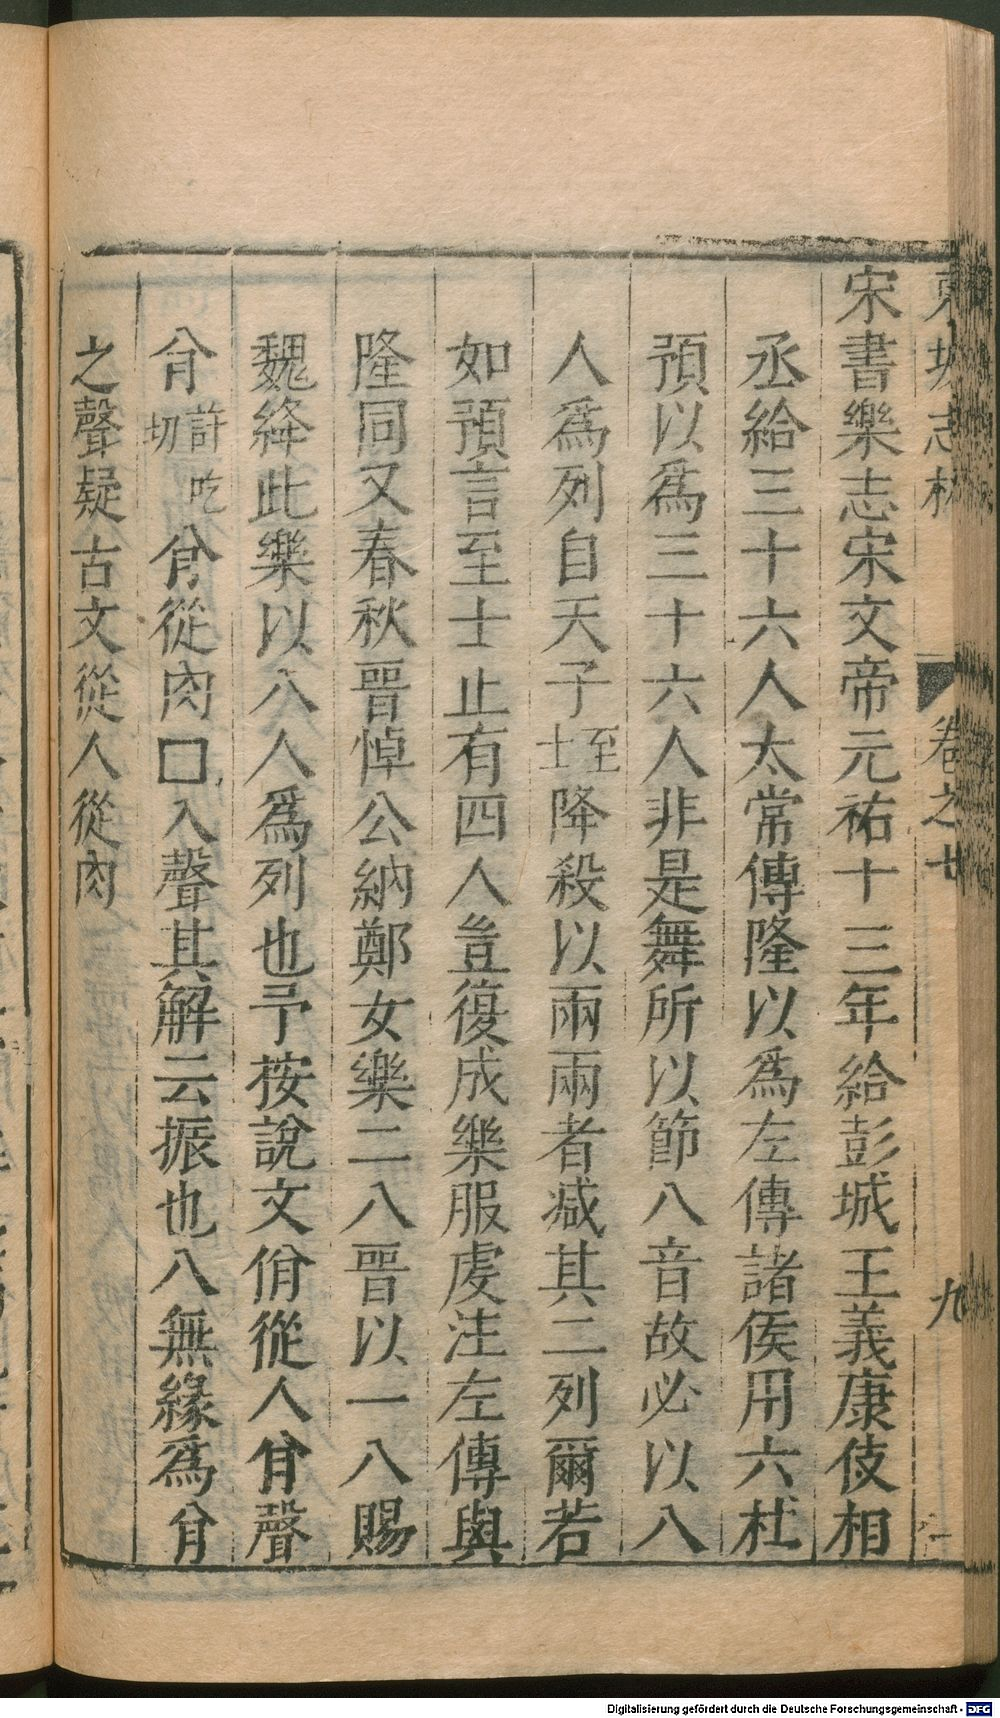 東坡志林 卷之七 九
宋書樂志宋文帝元祐十三年給彭城王義康伎相
丞給三十六人太常傅隆以為左傳諸侯用六杜
預以為三十六人非是舞所以節八音故必以八
人為列自天子至士降殺以兩兩者減其二列爾若
如預言至士止有四人豈復成樂服虔注左傳與
隆同又春秋晉悼公納鄭女樂二八晉以一八賜
魏絳此樂以八人為列也予按說文佾從人㑞聲
㑞許吃切㑞從肉口入聲其解云振也八無緣為㑞
之聲疑古文從人從肉
Digitalisierung gefördert durch die Deutsche Forschungsgemeinschaft - DFG